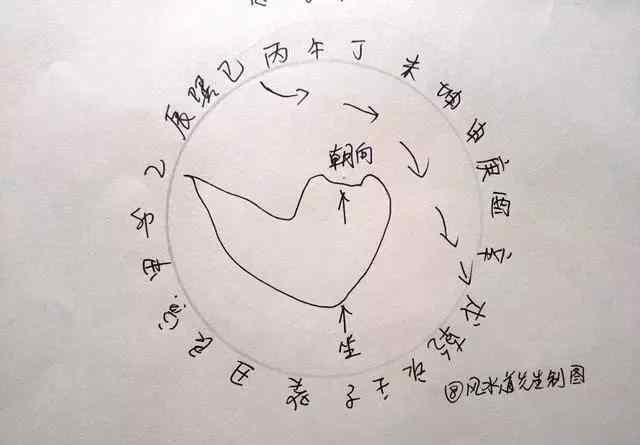 丙午丁未坤申庚酉辛戌乾亥壬子癸丑艮寅甲卯乙辰巽巳
朝向
坐
@风水道先生制图